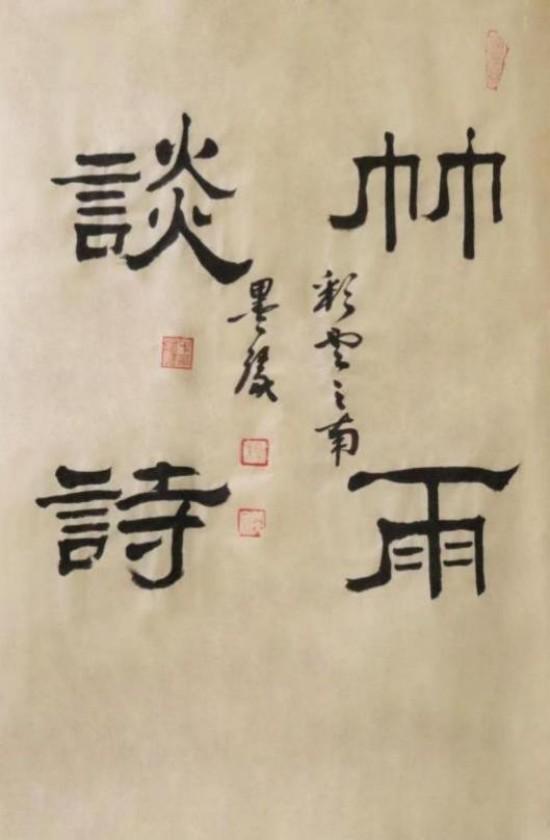 竹雨
談詩
彩雲之南
墨